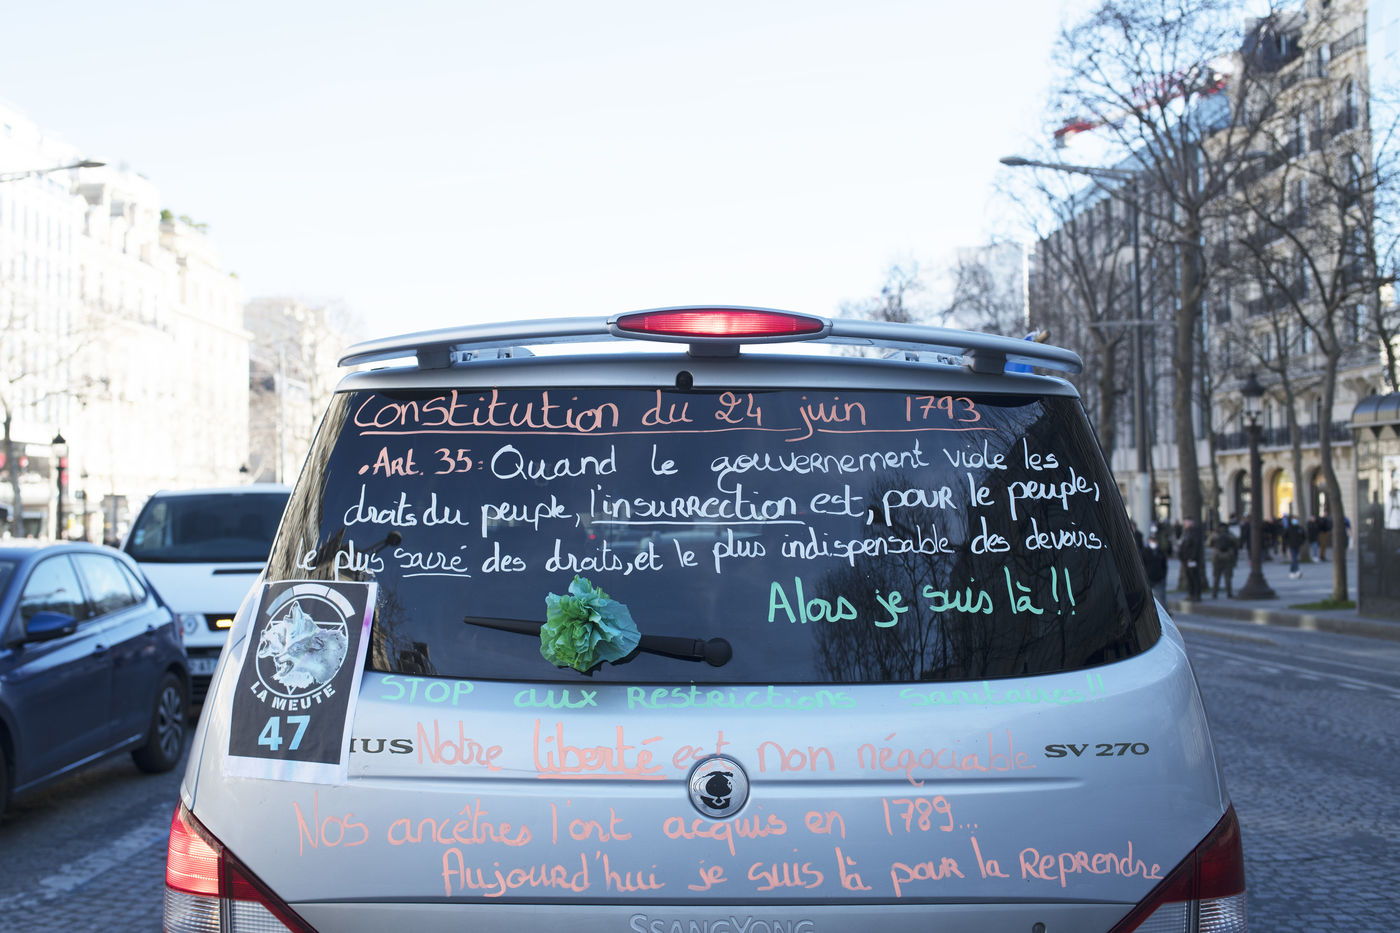 Constitution du 24 juin 1793
• Art. 35: Quand le gouvernement viole les
droits du peuple, l'insurrection est, pour le peuple,
le plus sacré des droits, et le plus indispensable des devoirs.
Alors je suis là !!
LA MEUTE
47
STOP aux restrictions sanitaires!!
IUS
Notre liberté est non négociable
SV 270
Nos ancêtres l'ont acquis en 1789...
Aujourd'hui je suis là pour la reprendre
SSANGYONG